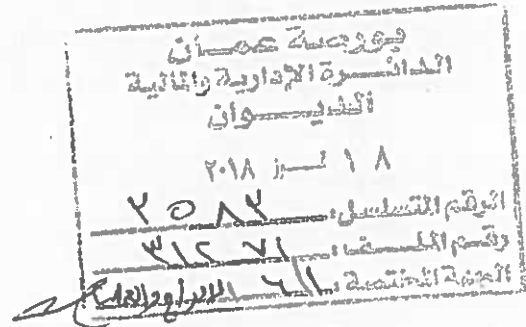 بورصة عمان
الدائرة الإدارية والمالية
الديوان
١٨ تموز ٢٠١٨
الرقم المتسلسل: ٢٥٨٢
رقم الملف: ٣١٢٧١
الجهة المختصة: